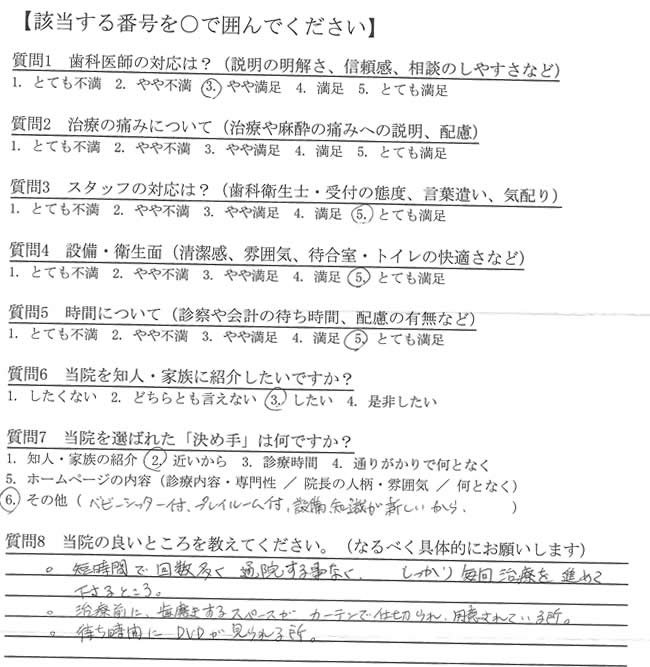 【該当する番号を○で囲んでください】
質問1 歯科医師の対応は？（説明の明解さ、信頼感、相談のしやすさなど）
1. とても不満 2. やや不満 3. やや満足 4. 満足 5. とても満足
質問2 治療の痛みについて（治療や麻酔の痛みへの説明、配慮）
1. とても不満 2. やや不満 3. やや満足 4. 満足 5. とても満足
質問3 スタッフの対応は？（歯科衛生士・受付の態度、言葉遣い、気配り）
1. とても不満 2. やや不満 3. やや満足 4. 満足 5. とても満足
質問4 設備・衛生面（清潔感、雰囲気、待合室・トイレの快適さなど）
1. とても不満 2. やや不満 3. やや満足 4. 満足 5. とても満足
質問5 時間について（診察や会計の待ち時間、配慮の有無など）
1. とても不満 2. やや不満 3. やや満足 4. 満足 5. とても満足
質問6 当院を知人・家族に紹介したいですか？
1. したくない 2. どちらとも言えない 3. したい 4. 是非したい
質問7 当院を選ばれた「決め手」は何ですか？
1. 知人・家族の紹介 2. 近いから 3. 診療時間 4. 通りがかりで何となく
5. ホームページの内容（診療内容・専門性 ／ 院長の人柄・雰囲気 ／ 何となく）
6. その他（ベビーシッター付、プレイルーム付、設備知識が新しいから、）
質問8 当院の良いところを教えてください。（なるべく具体的にお願いします）
。短時間で回数多く通院する事なく、しっかり毎回治療を進めて
下さるところ。
。治療前に、歯磨きするスペースがカーテンで仕切られ、用意されている所。
。待ち時間にDVDが見られる所。